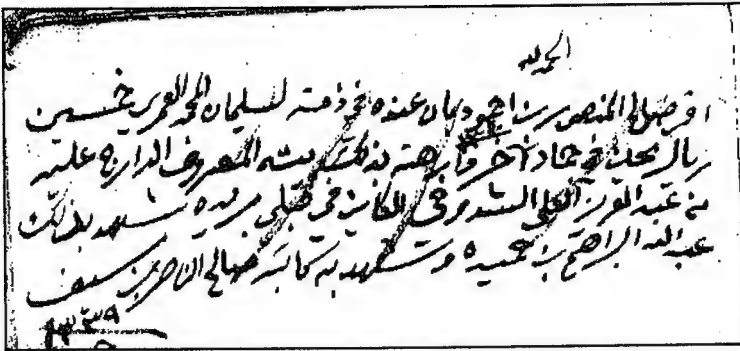 الحمد لله
اقر صالح المنصور بن حمود بان عنده في ذمته لسليمان المحمد العمري خمسين
ريال يحلن في جماد آخر وارهنه بذلك بيته المعروف الدارج عليه
من عبدالعزيز العلي السديري في الكاين في قبلي بريده شهد بذلك
عبدالله البراهيم بن حميده وشهد به كاتبه صالح الناصر بن سيف
١٣٣٩